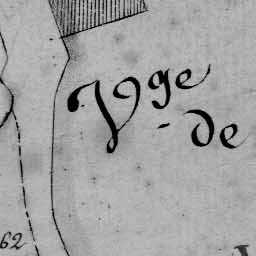 Vge
-de
62